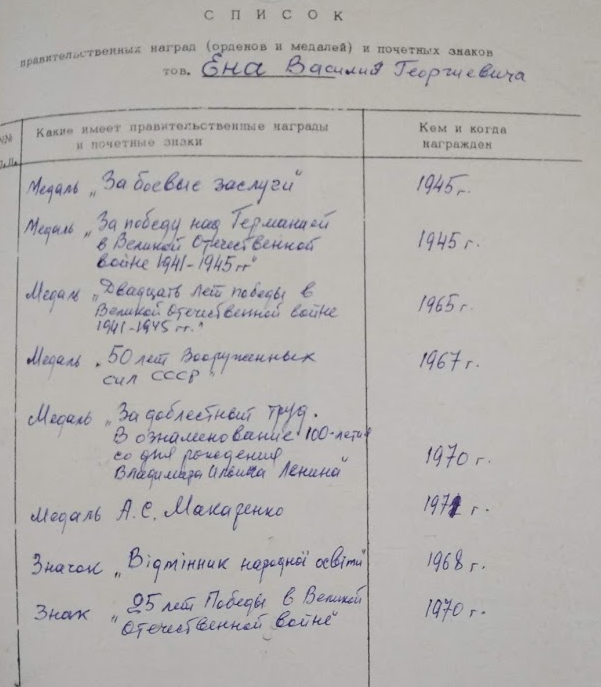 СПИСОК
правительственных наград (орденов и медалей) и почетных знаков
тов. Ена Василия Георгиевича
№№ Какие имеет правительственные награды Кем и когда
п.п. и почетные знаки награжден
Медаль „За боевые заслуги" 1945г.
Медаль „За победу над Германией
в Великой Отечественной 1945 г.
войне 1941-1945гг"
Медаль „Двадцать лет победы в
Великой Отечественной войне 1965 г.
1941-1945 гг."
Медаль „50 лет Вооруженных 1967 г.
сил СССР"
Медаль „За доблестный труд.
В ознаменование 100-летия
со дня рождения 1970 г.
Владимира Ильича Ленина"
Медаль А.С. Макаренко 1971 г.
Значок „Відмінник народної освіти" 1968 г.
Знак „25 лет Победы в Великой 1970 г.
Отечественной войне"